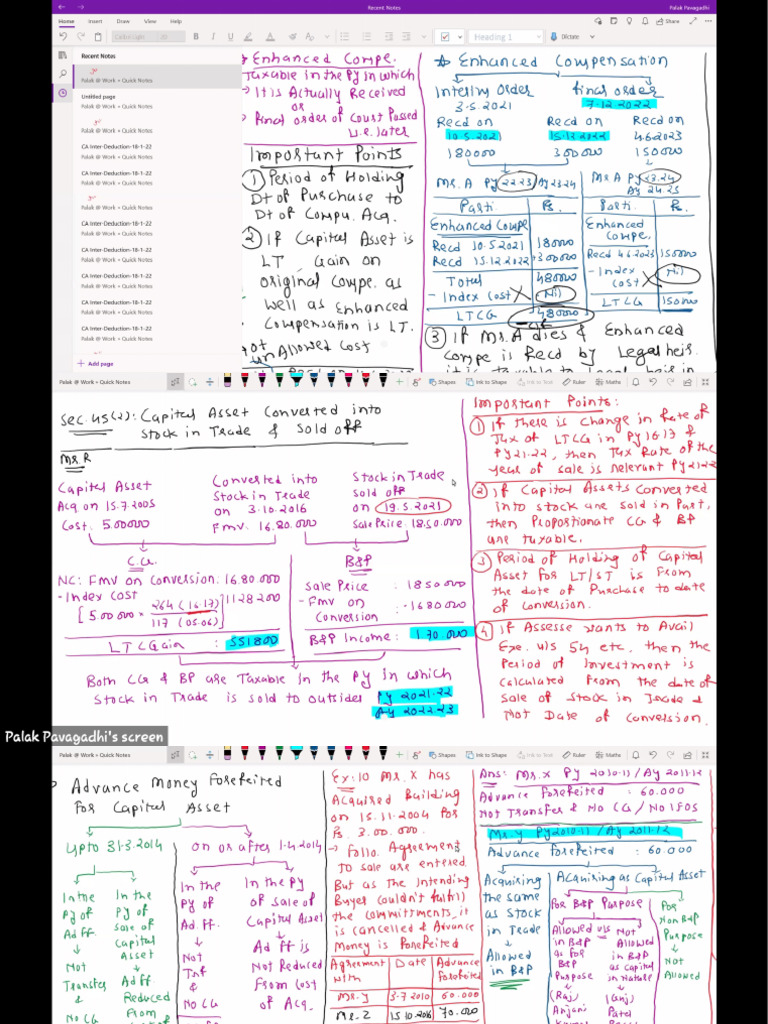 Recent Notes
Palak Pavagadhi
Home Insert Draw View Help
Share
Calibri Light 20
B I U A
Heading 1
Dictate
Recent Notes
Palak @ Work • Quick Notes
Untitled page
Palak @ Work • Quick Notes
Palak @ Work • Quick Notes
CA Inter-Deduction-18-1-22
Palak @ Work • Quick Notes
CA Inter-Deduction-18-1-22
Palak @ Work • Quick Notes
Palak @ Work • Quick Notes
CA Inter-Deduction-18-1-22
Palak @ Work • Quick Notes
CA Inter-Deduction-18-1-22
Palak @ Work • Quick Notes
CA Inter-Deduction-18-1-22
Palak @ Work • Quick Notes
CA Inter-Deduction-18-1-22
Palak @ Work • Quick Notes
CA Inter-Deduction-18-1-22
Palak @ Work • Quick Notes
+ Add page
Enhanced Compe.
Taxable in the Py in which
→ It is Actually Received
or
→ Final order of Court Passed
w.e. later
Important Points
① Period of Holding
Dt of Purchase to
Dt of Compu. Acq.
② If Capital Asset is
LT Gain on
original Compe. as
well as Enhanced
Compensation is LT.
Allowed Cost
Enhanced Compensation
Interim Order final order
3.5.2021 7.12.2022
Recd on Recd on Recd on
10.5.2021 15.12.2022 4.6.2023
180000 300000 150000
Mr. A Py 22.23 Ay 23.24
Parti Rs.
Enhanced Compe
Recd 10.5.2021 180000
Recd 15.12.2022 +300000
Total 480000
- Index Cost Nil
LTCG 480000
Mr A Py 23.24
Ay 24.25
Parti. Rs.
Enhanced
Compe.
Recd 4.6.2023 150000
- Index Cost Nil
LTCG 150000
③ If Mr. A dies & Enhanced
Compe is Recd by Legal heir.
Palak @ Work • Quick Notes
Shapes Ink to Shape Ink to Text Ruler Maths
Sec. 45(2): Capital Asset Converted into
Stock in Trade & Sold off
Mr. R
Capital Asset
Acq on 15.7.2005
Cost. 5.00000
Converted into
Stock in Trade
on 3.10.2016
Fmv. 16.80.000
Stock in Trade
sold off
on 19.5.2021
Sale Price: 18.50.000
C.G.
NC: Fmv on Conversion: 16.80.000
- Index Cost
[5.00000 × 264 (16.17) / 117 (05.06)] 1128200
LTC Gain : 551800
B&P
Sale Price : 1850000
- Fmv on
Conversion : -1680000
B&P Income: 170.000
Both CG & BP are Taxable in the Py in which
Stock in Trade is sold to outsides Py 2021.22
Ay 2022.23
Important Points:
① If there is change in Rate of
Tax of LTCG in Py 16.17 &
Py 21.22, then Tax Rate of the
year of sale is relevant Py 21.22
② If Capital Assets Converted
into stock are sold in Part,
then Proportionate CG & BP
are taxable.
③ Period of Holding of Capital
Asset for LT/ST is From
the date of Purchase to date
of Conversion.
④ If Assesse wants to Avail
Exe. u/s 54 etc, then the
Period of Investment is
Calculated From the date of
Sale of Stock in Trade &
Not Date of Conversion.
Palak Pavagadhi's screen
Palak @ Work • Quick Notes
Shapes Ink to Shape Ink to Text Ruler Maths
Advance Money Forefeited
For Capital Asset
upto 31.3.2014 on or after 1.4.2014
In the
Py of
Ad ff.
↓
Not
Transfer
&
No CG
In the
Py of
sale of
Capital
Asset
↓
Ad ff
Reduced
From
In the
Py of
Ad ff.
↓
Not
Tnf
&
No CG
In the Py
of sale of
Capital Asset
↓
Ad ff is
Not Reduced
From Cost
of Acq.
Ex:10 Mr. X has
Acquired Building
on 15.11.2004 for
Rs. 3.00.000.
→ Follo. Agreement
To sale are entered
But as the Intending
Buyer Couldn't fulfil
the committments, it
is cancelled & Advance
Money is Forefeited
Agreement with Date Advance Forefeited
Mr. Y 3.7.2010 60.000
Mr. Z 15.10.2016 70.000
Ans: Mr. X Py 2010.11 / Ay 2011.12
Advance Forefeited : 60.000
Not Transfer & No CG / No IFOS
Mr. Y Py 2010.11 / Ay 2011.12
Advance Forefeited : 60.000
Acquiring
the same
as Stock
in Trade
↓
Allowed
in B&P
Acquiring as Capital Asset
For B&P Purpose
Allowed u/s
in B&P
as for
B&P
Purpose
↓
(Raj)
Anjani
Not
Allowed
in B&P
as Capital
in Nature
↓
(Anj)
Patel
For
Non B&P
Purpose
↓
Not
Allowed